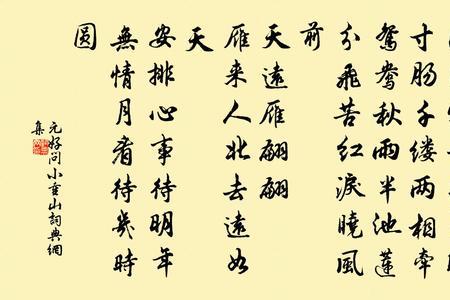 寸肠千缕两相牵
鸳鸯秋雨半池蓮
分飛苦红淚曉風
前
天遠雁翩翩
雁来人北去遠如
天
安排心事待明年
無情月看待幾時
圆
元好问小重山詞典網
集